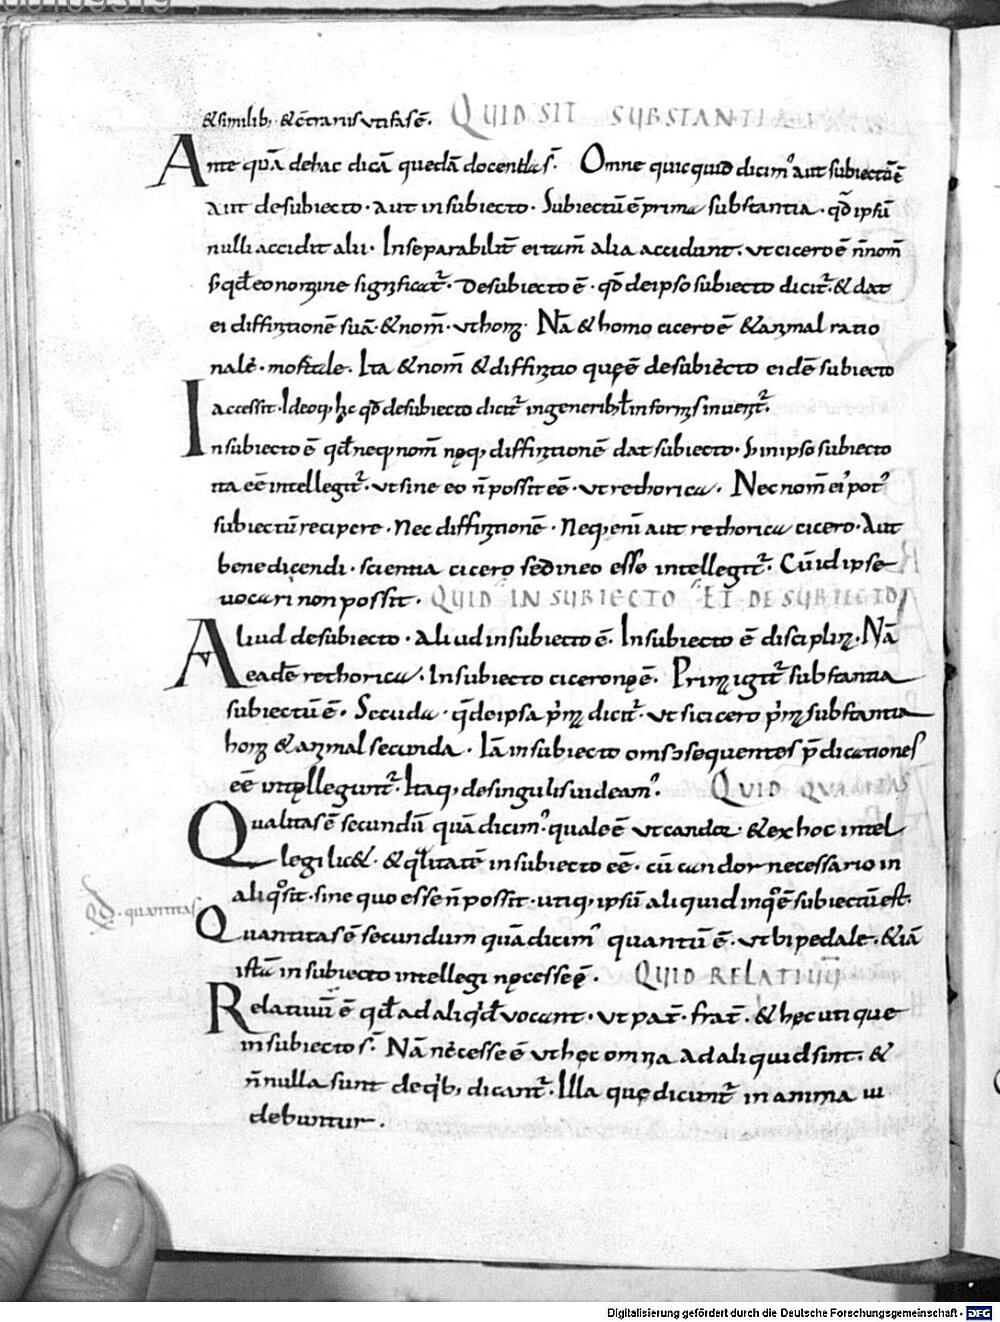 &similib; &c̄trariis ut ifasē. QUID SIT SUBSTANTIA
Ante quā dehac dicā quedā docentla s̄. Omne quicquid dicim' aut subiectū ē
aut desubiecto · aut insubiecto · Subiectū ē prima substantia · qđ ipsū
nulli accidit alii · Inseparabilit̄ ei tam̄ alia accidunt. ut cicero ē ñ nom̄
s; qđ eo nomine significat̄. De subiecto ē · qđ deipso subiecto dicit̄. & dat
ei diffinitionē suā · & nom̄ · ut homo · Nā & homo cicero ē & animal ratio
nale · mortale. Ita & nom̄ & diffinitio quę ē desubiecto eidē subiecto
accessit · Ideoq; hęc qđ desubiecto dicit̄ ingenerib; ł informis inuenit̄.
Insubiecto ē qđ neq; nom̄ nęq; diffinitionē dat subiecto · S; inipso subiecto
ita eē intellegit̄. ut sine eo ñ possit eē · ut rethorica. Nec nom̄ ei' pot'
subiectū recipere · Nec diffinitionē · Neq; eni aut rethorica cicero · Aut
benedicendi · scientia cicero sed ineo esse intellegit̄. Cū id ipse
uocari non possit. QUID IN SUBIECTO ET DE SUBIECTO
Aliud desubiecto · aliud insubiecto ē. Insubiecto ē disciplina · Nā
eadē rethorica. Insubiecto ciceronę ē. Prima igit̄ substantia
subiectū ē. Secūda · q̄ deipsa prima dicit̄. ut si cicero prima substantia
homo & animal secunda. Iā insubiecto om̄s ↄsequentes p̄dicationes
eē intęlleguntr̄. Itaq; desingulis uideam'. QUID QUALITAS
Qualitas ē secundū quā dicim' quale ē ut candor & ex hoc intel
legi lic& · & qlitatē insubiecto eē. cū candor necessario in
aliq̊ sit · sine quo esse ñ possit · utiq; ipsū aliquid inq̊ ē subiectū est.
Qđ · quantitas
Quantitas ē secundum quā dicim' quantū ē. ut bipedale · & iā
istā insubiecto intellegi nęcesse ę. QUID RELATIUŪ
Relatiuū ē qđ ad aliqđ uocant · ut pat̄ · frat̄. & hęc utique
insubiecto s̄. Nā necesse ē ut hęc omnia ad aliquid sint. &
ñ nulla sunt deq'b; dicant̄. Illa quę dicunt̄ in anima ui
debuntur.
Digitalisierung gefördert durch die Deutsche Forschungsgemeinschaft · DFG